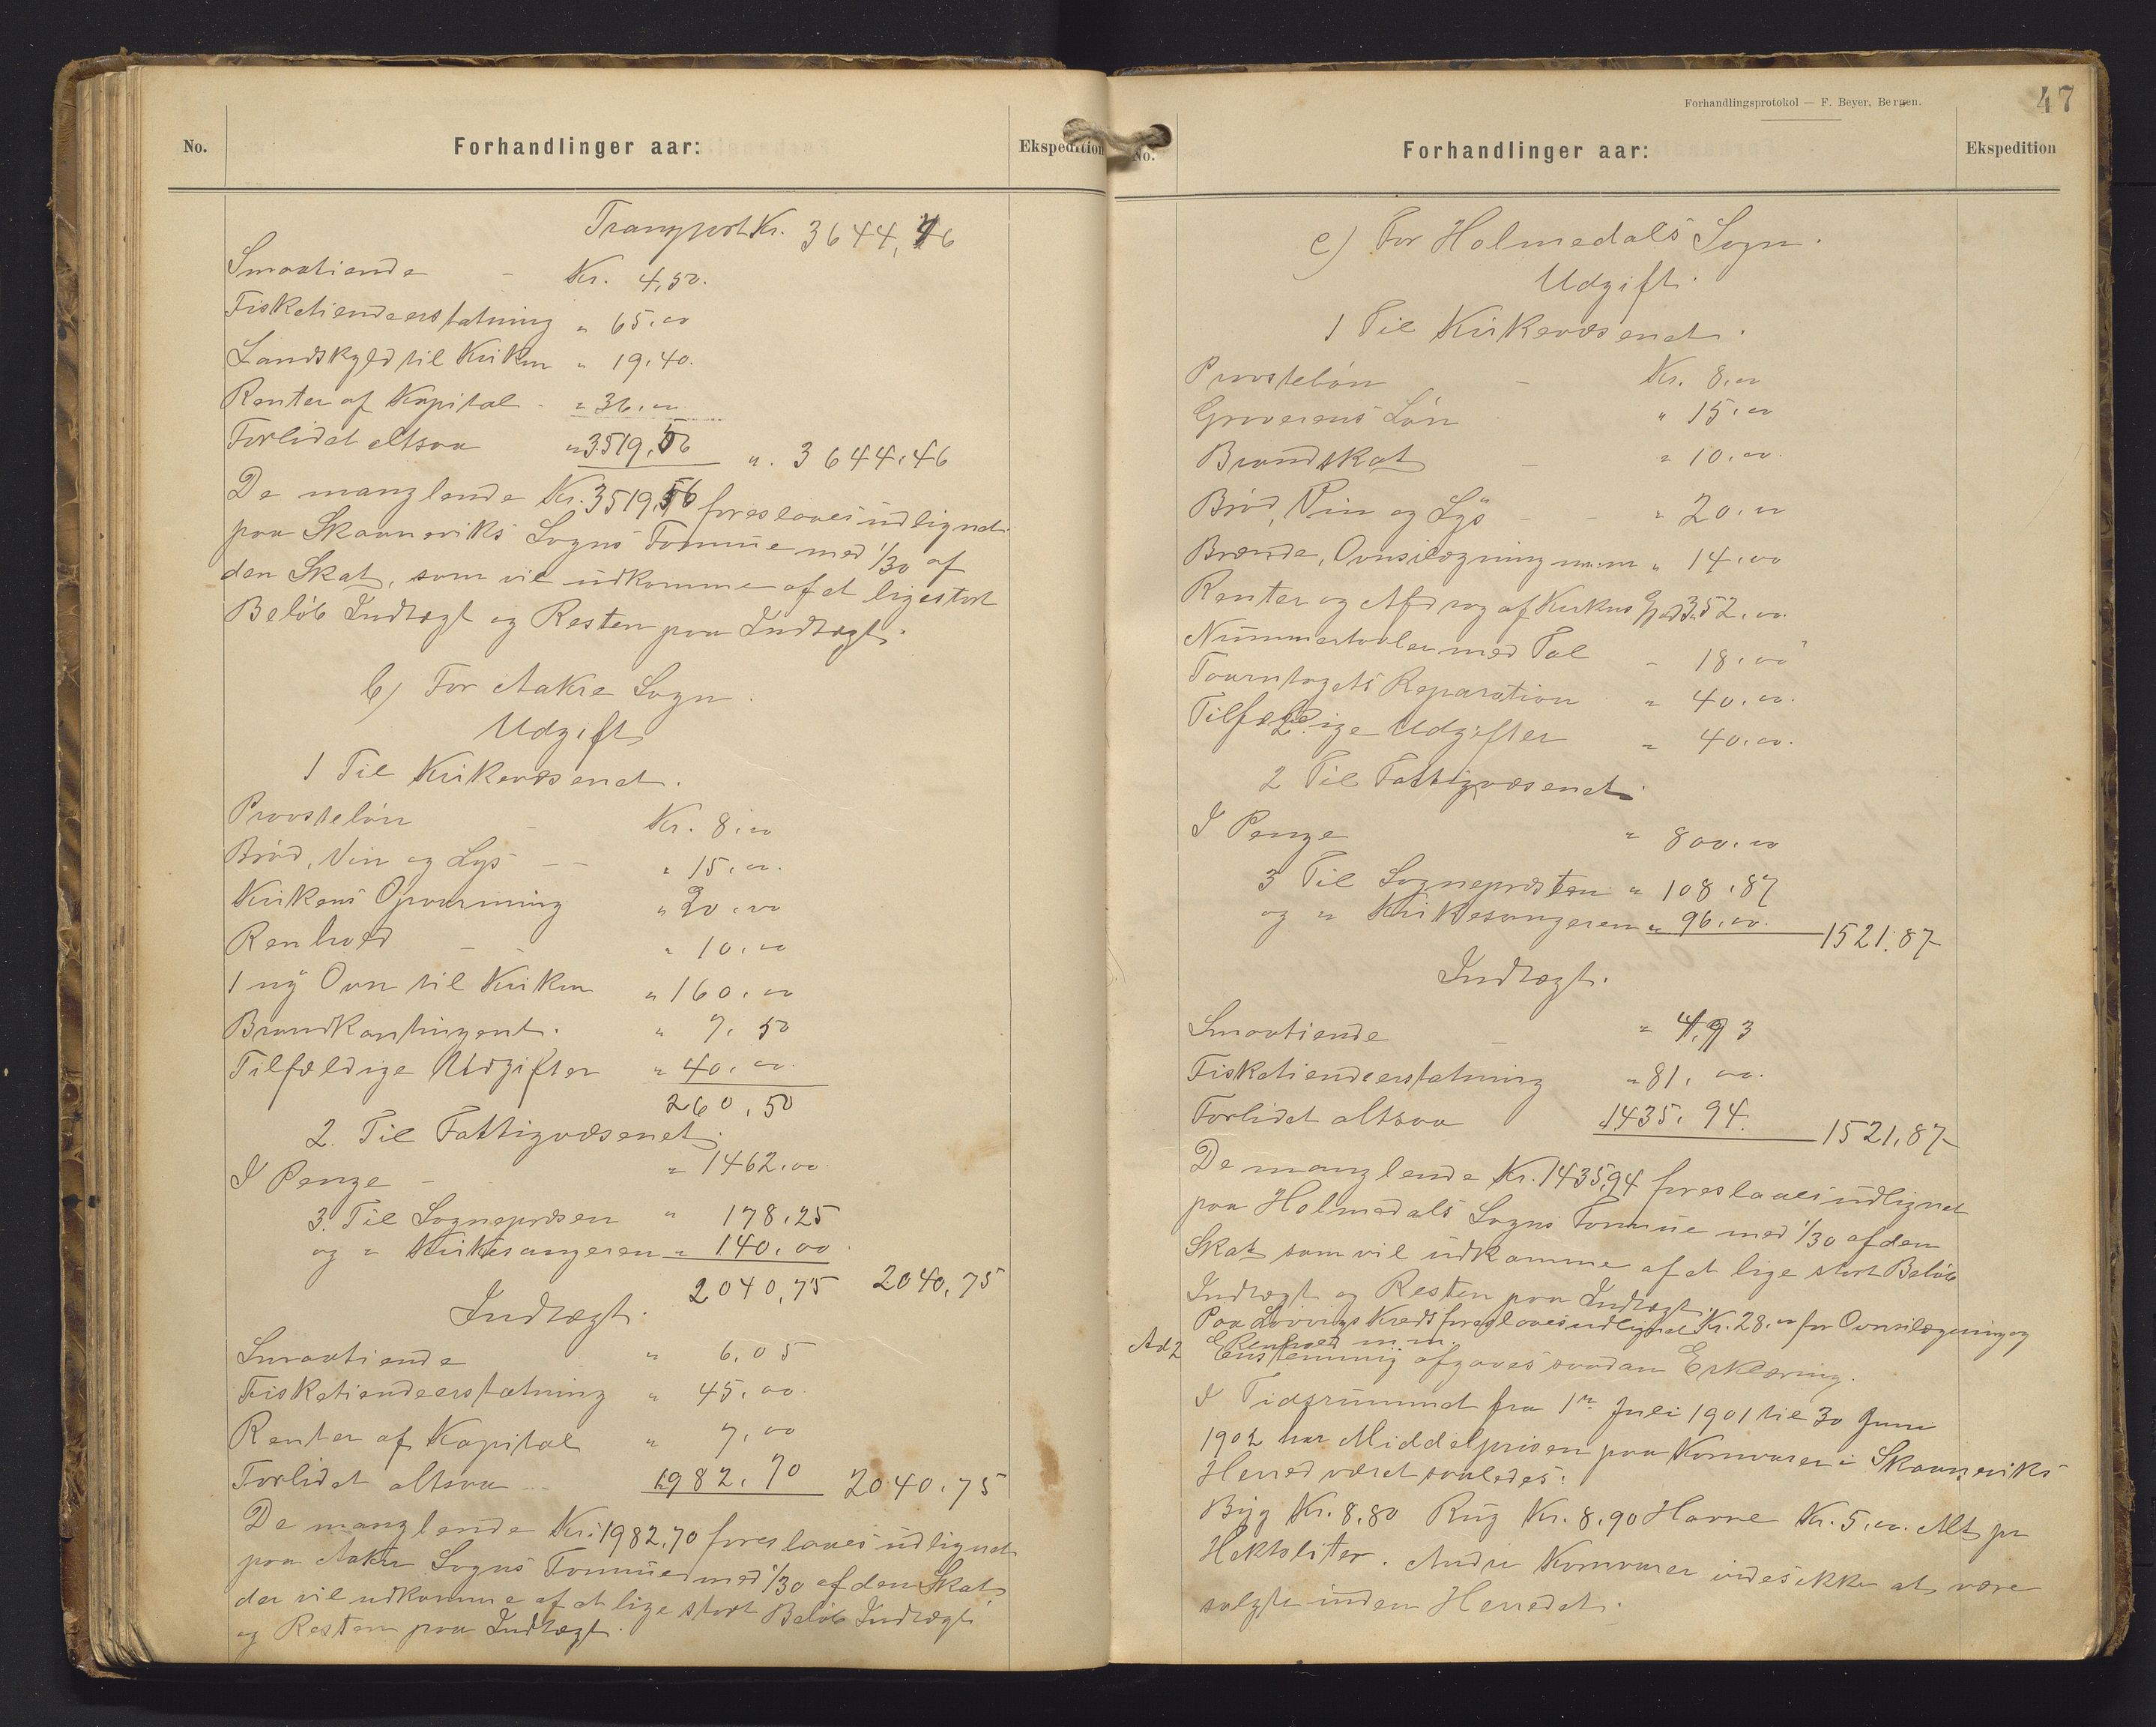 No.
Forhandlinger aar:
Ekspedition
Transport Kr. 3644,46
Smaatiende - Kr. 4,50.
Fisketiendeerstatning " 65,00
Landskyld til Kirken " 19,40.
Renter af Kapital - " 36,00
Forlidet altsaa " 3519,56 ". 3644,46
De manglende Kr. 3519,56 foreslaaes udlignet
paa Skaaneviks Sogns Formue med 1/30 af
den Skat, som vil udkomme af et ligestort
Beløb Indtægt og Resten paa Indtægt.
b) For Aakre Sogn.
Udgift
1 Til Kirkevæsenet.
Provsteløn - Kr. 8,00
Brød, Vin og Lys - - " 15,00.
Kirkens Opvarming " 20,00
Renhold - - " 10,00
1 ny Ovn til Kirken " 160,00
Brandkontingent. " 7,50
Tilfældige Udgifter " 40,00.
260,50
2. Til Fattigvæsenet.
I Penge - " 1462,00
3. Til Sognepræsen " 178,25
og " Kirkesangeren " 140,00.
2040,75 2040,75
Indtægt.
Smaatiende " 6,05
Fisketiendeerstatning " 45,00.
Renter af Kapital " 7,00
Forlidet altsaa - " 1982,70 2040,75
De manglende Kr. 1982,70 foreslaaes udlignet
paa Aakre Sogns Formue med 1/30 af den Skat
der vil udkomme af et lige stort Beløb Indtægt
og Resten paa Indtægt.
Forhandlingsprotokol — F. Beyer, Bergen.
47
No.
Forhandlinger aar:
Ekspedition
c) For Holmedals Sogn.
Udgift.
1 Til Kirkevæsenet.
Provsteløn - Kr. 8,00
Graverens Løn " 15,00
Brandskat - " 10,00.
Brød, Vin og Lys - - " 20,00
Brænde, Ovnsilægning m.m " 14,00
Renter og Afdrag af Kirkens Gjæld " 352,00.
Nummertavler med Tal - 18,00
Taarntagets Reparation " 40,00.
Tilfældige Udgifter " 40,00.
2 Til Fattigvæsenet.
I Penge " 800,00
3 Til Sognepræsten " 108,87
og " Kirkesangeren " 96,00. 1521,87
Indtægt.
Smaatiende - " 4,93
Fisketiendeerstatning " 81,00.
Forlidet altsaa " 1435,94. 1521,87
De manglende Kr. 1435,94 foreslaaes udlignet
paa Holmedals Sogns Formue med 1/30 af den
Skat som vil udkomme af et lige stort Beløb
Indtægt og Resten paa Indtægt.
Paa Kreds foreslaaes udlignet Kr. 28,00 for Ovnsilægning og
Renhold m.m.
Ad 2 Enstemmig afgaves saadan Erklæring.
I Tidsrummet fra 1ste Juli 1901 til 30 Juni
1902 har Middelprisen paa Kornvarer i Skaaneviks
Herred været saaledes:
Byg Kr. 8,80 Rug Kr. 8,90 Havre Kr. 5,00. Alt pr
Hektoliter. Andre Kornvarer vides ikke at være
solgte inden Herredet.